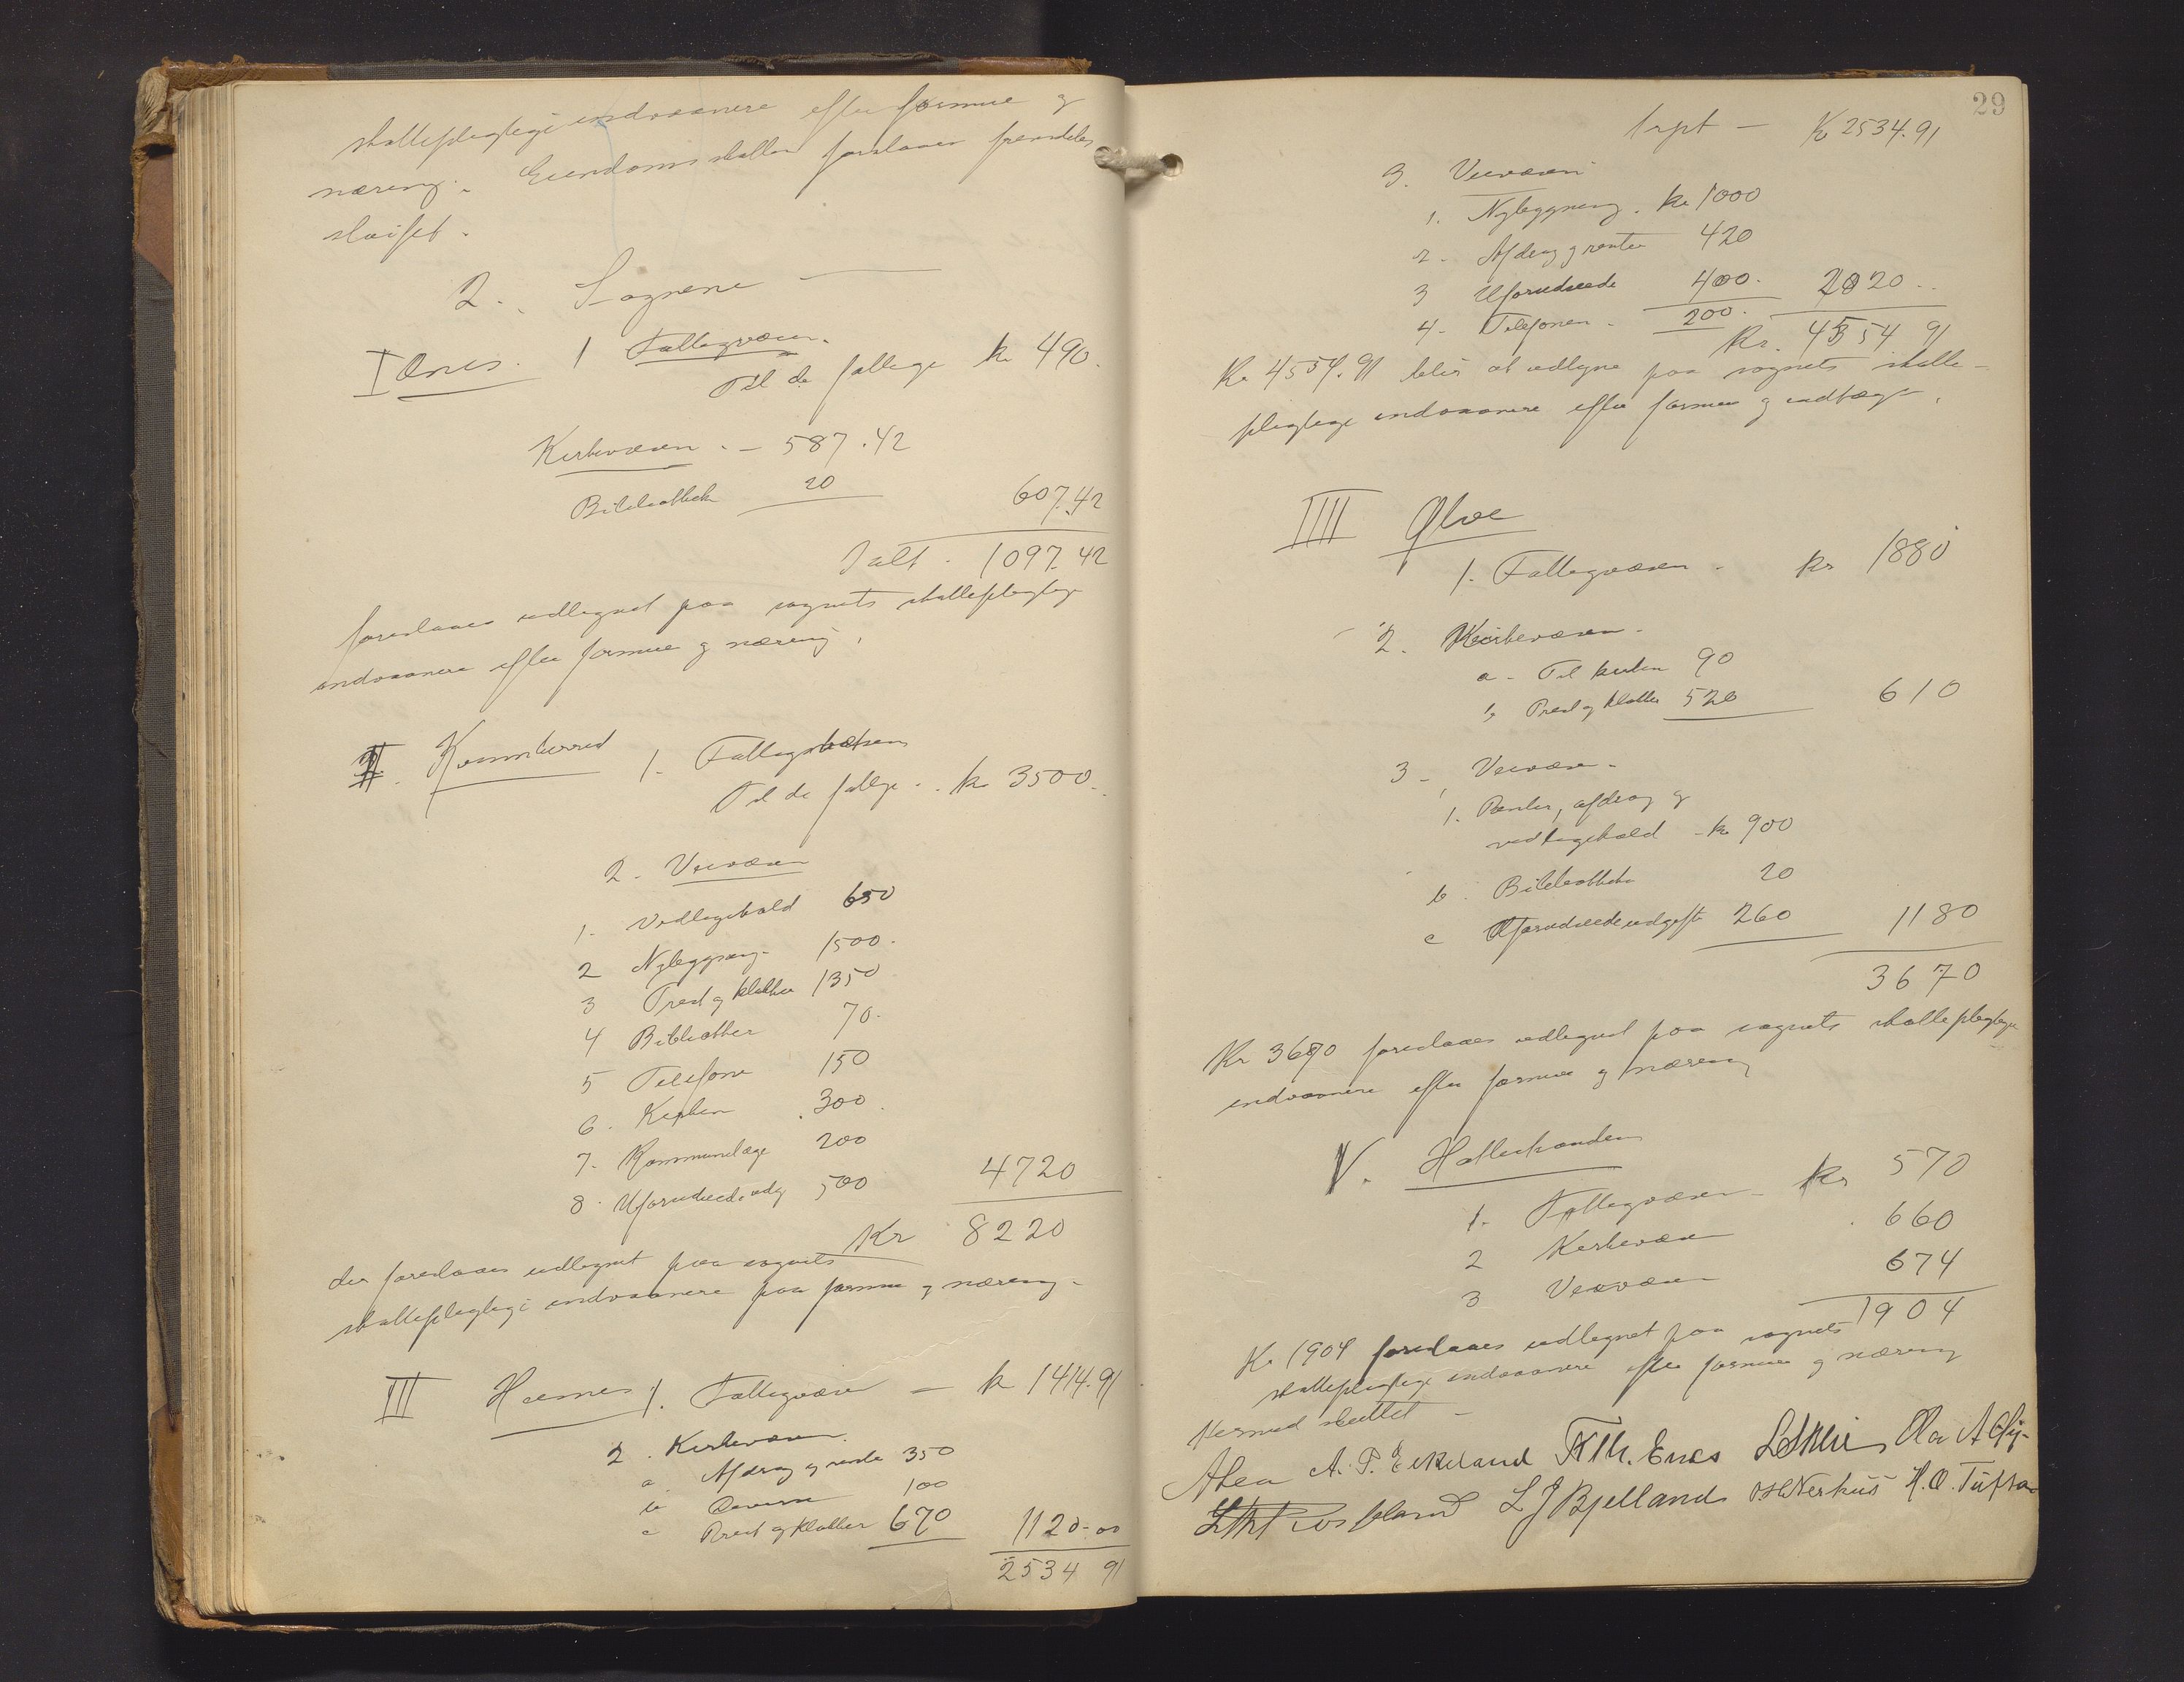 skattepligtige indvaanere efter formue og
næring. Eiendomsskatten foreslaaes fremdeles
sløifet.
2. Sognene
I Ænes. 1 Fattigvæsen.
Til de fattige kr 490.
Kirkevæsen. – 587.42
Bibliothek 20 607.42
Ialt. 1097.42
foreslaaes udlignet paa sognets skattepligtige
indvaanere efter formue og næring.
II. Kvinnherred 1. Fattigvæsen
Til de fattige. kr 3500.
2. Veivæsen
1. Vedligehold 650
2 Nylægning 1500.
3 Prest og klokker 1350
4 Bibliother 70.
5 Telefone 150
6. Kirken 300
7. Kommunelæge 200
8. Uforudseede udg 500 4720
Kr 8220
der foreslaaes udlignet paa sognets
skattepligtige indvaanere paa formue og næring.
III Husnes 1. Fattigvæsen – kr 1414.91
2. Kirkevæsen.
a. Afdrag og rente 350
b. Diverse 100
c Prest og klokker 670 1120-00
2534 91
29
Trpt – Kr 2534.91
3. Veivæsen
1. Nylægning. kr 1000
2. Afdrag og renter 420
3 Uforudseede 400. 2020..
4. Telefoner. 200.
Kr. 4554 91
Kr 4554.91 blir at udligne paa sognets skatte-
pligtige indvaanere efter formue og indtægt.
IIII Ølve
1. Fattigvæsen. kr 1880
2. Kirkevæsen.
a. Til kirken 90
b Prest og klokker 520 610
3. Veivæsen.
1. Renter, afdrag og
vedligehold – kr 900
b. Bibliothek 20
c Uforudseede udgifte 260 1180
3670
Kr 3670 foreslaaes udlignet paa sognets skattepligtige
indvaanere efter formue og næring
V. Hatlestranden
1. Fattigvæsen – kr 570
2 Kirkevæsen 660
3 Veivæsen 674
1904
Kr 1904 foreslaaes udlignet paa sognets
skattepligtige indvaanere efter formue og næring
Hermed sluttet –
A. T. Eikeland Fr Th. Enes Ola A
L J Bjelland O. H. Nerhus H. O. Tufta